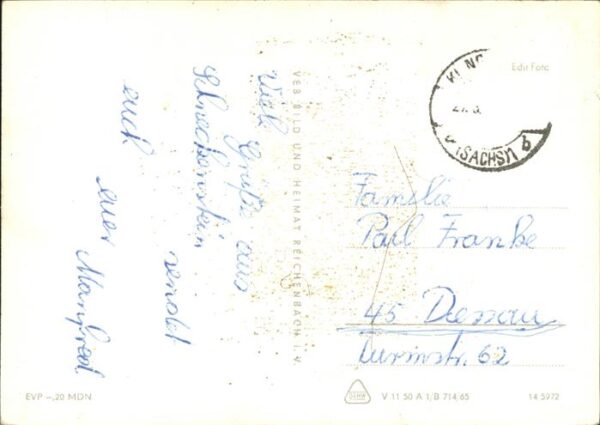 Viele Grüße aus
Schneckenstein
sendet
euch
euer Manfred
VEB BILD UND HEIMAT REICHENBACH I. V.
Edir Foto
KLING
(SACHS)1
b
Familie
Paul Franke
45 Dessau
62
EVP –,20 MDN
V 11 50 A 1/B 714/65
14 5972